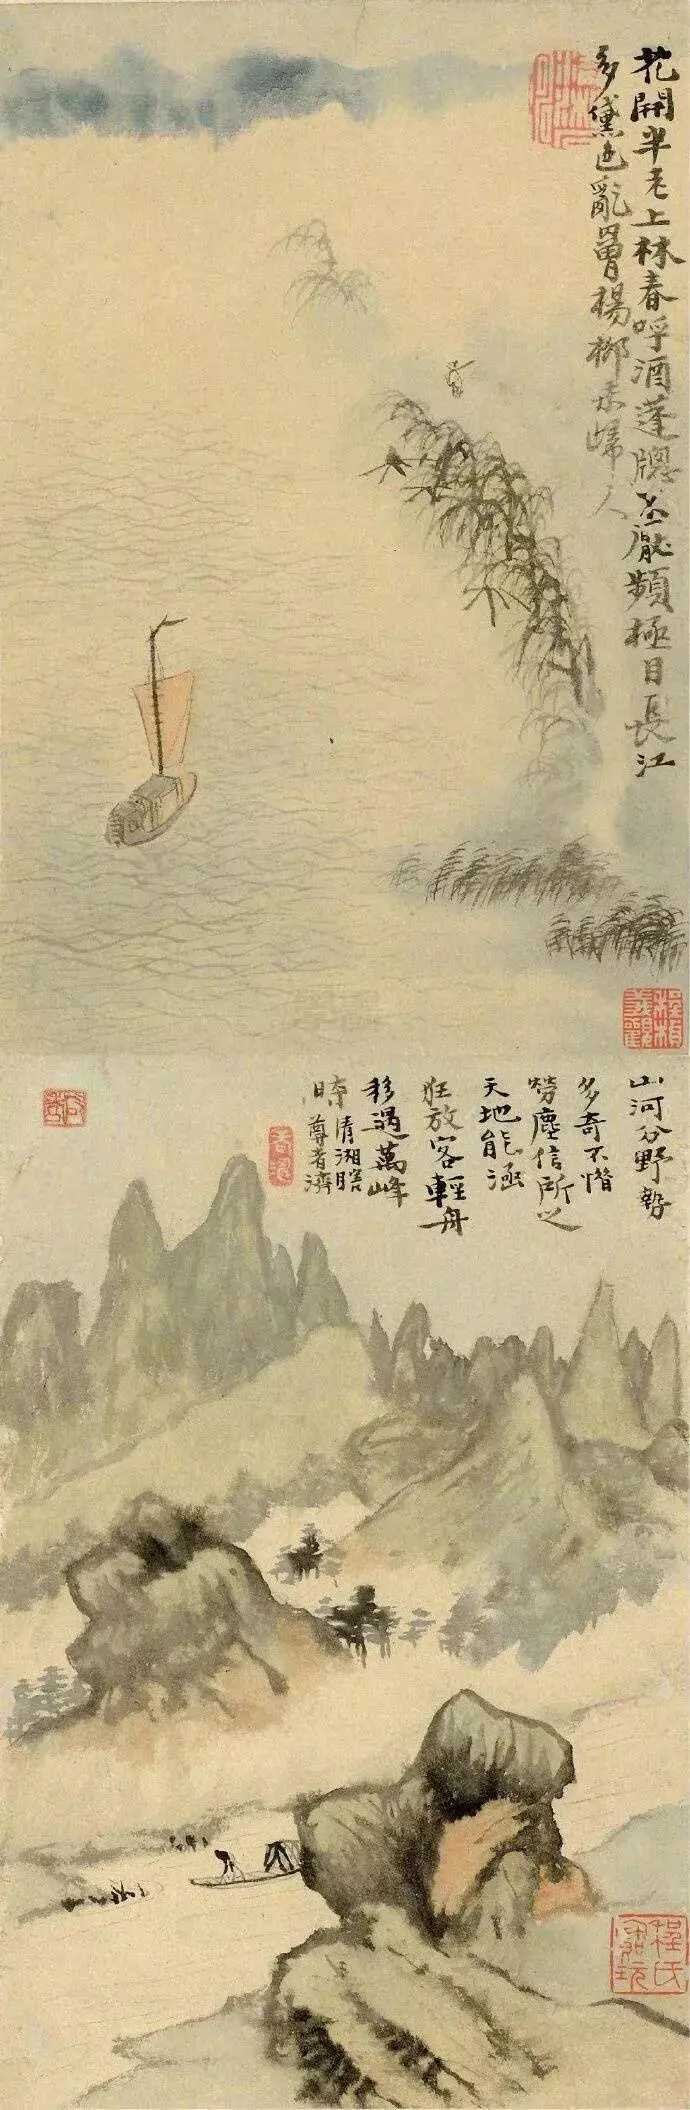 花開半老上林春呼酒蓬牕不厭頻極目長江
多黛色亂楊柳未歸人
山河分野勢
多奇不惜
勞塵信所之
天地能涵
狂放客輕舟
移過萬峰
清湘瞎
尊者濟